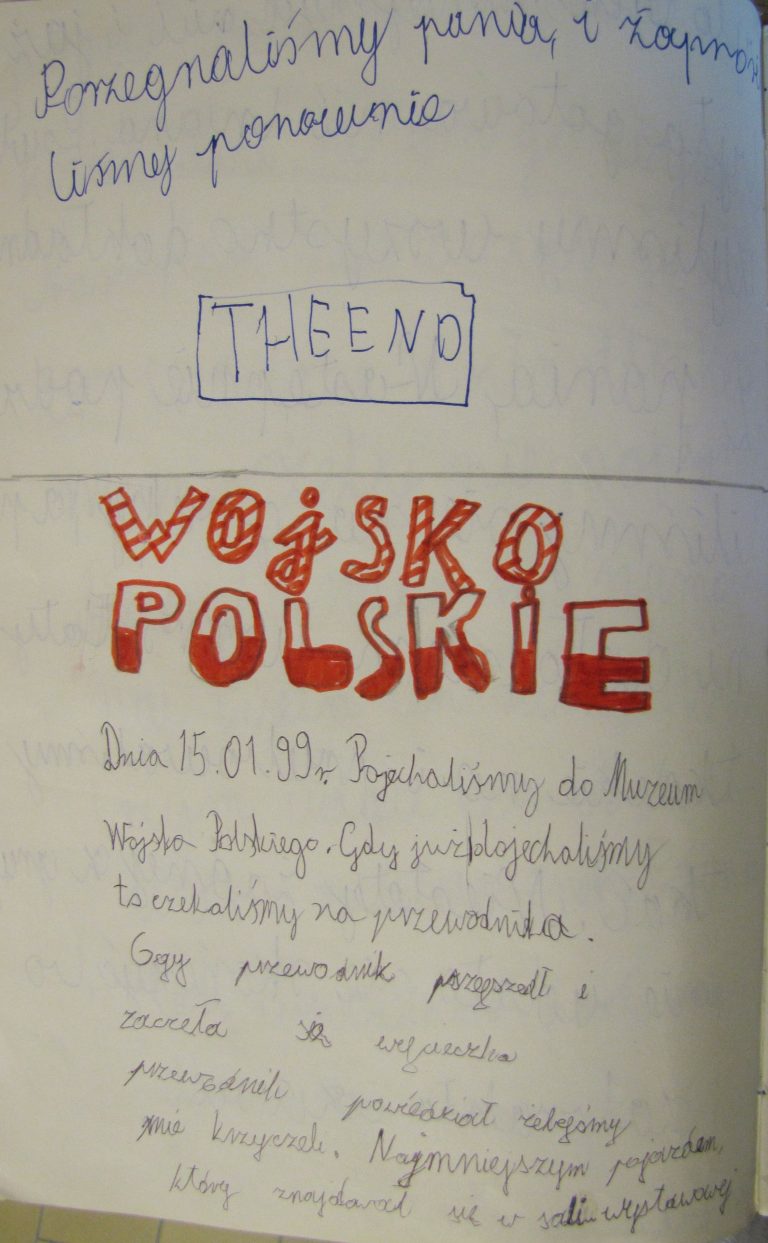 Porzegnaliśmy panią, i żaprosi
liśmy ponownie
THE END
WOJSKO
POLSKIE
Dnia 15.01.99r. Pojechaliśmy do Muzeum
Wojska Polskiego. Gdy już dojechaliśmy
to czekaliśmy na przewodnika.
Gdy przewodnik przyszedł i
zaczeła się wycieczka
przewodnik powiedział żebyśmy
nie krzyczeli. Najmniejszym pojazdem,
który znajdował się w sali wystawowej